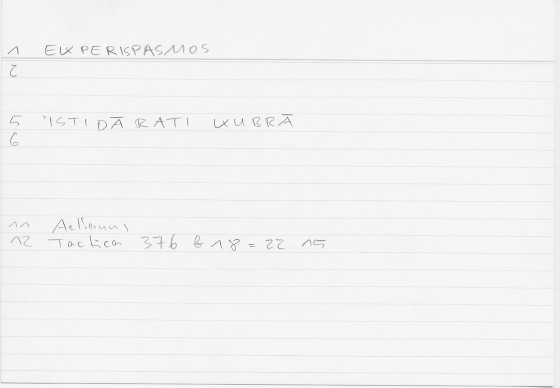 1 EKPERISPASMOS
2
5 'ISTIDĀRATI KUBRĀ
6
11 Aelianus
12 Tactica 376 b 18 = 22.15